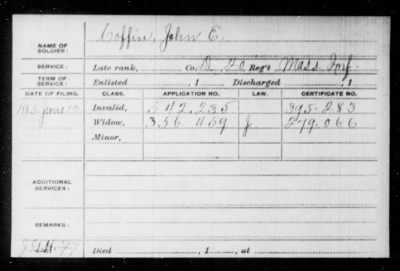 NAME OF SOLDIER: Coffin, John E.
SERVICE: Late rank, Co. D, 20 Reg't Mass. Inf.
TERM OF SERVICE: Enlisted , 1 Discharged , 1
DATE OF FILING. CLASS. APPLICATION NO. LAW. CERTIFICATE NO.
Invalid, 542.235 395.283
Widow, 356 459 279.066
Minor,
ADDITIONAL SERVICES:
REMARKS:
Died , 1 , at